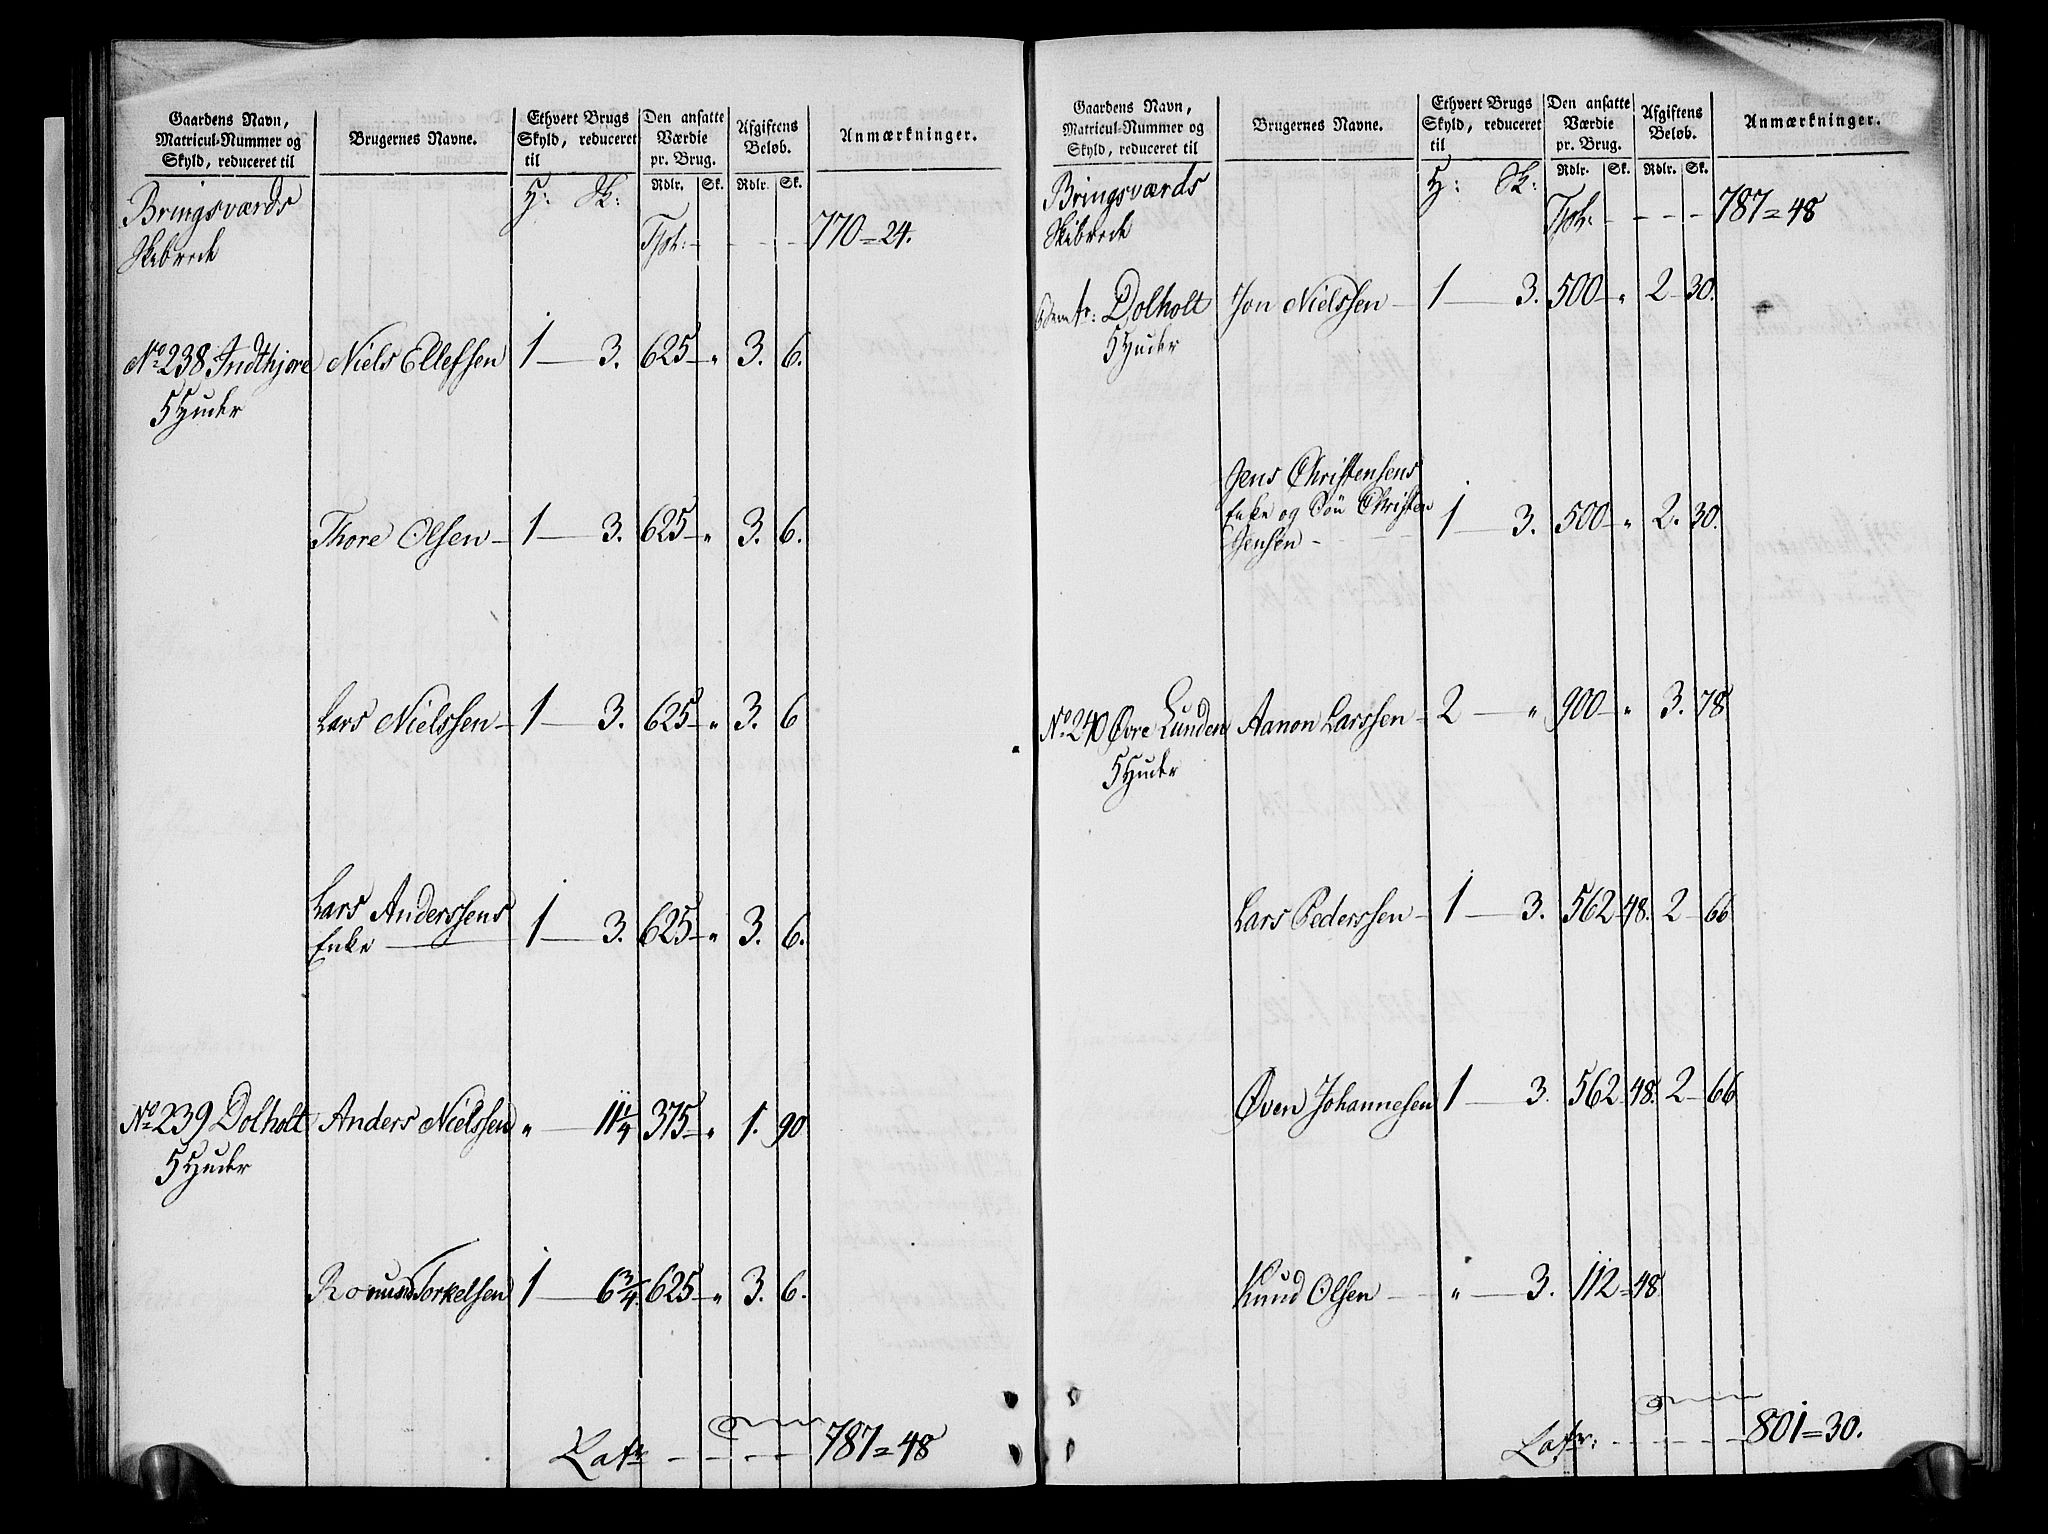 Gaardens Navn,
Matricul-Nummer og
Skyld, reduceret til
Brugernes Navne.
Ethvert Brugs
Skyld, reduceret
til
Den ansatte
Værdie
pr. Brug.
Afgiftens
Beløb.
Anmærkninger.
Rdlr. Sk. Rdlr. Sk.
H: Sk:
Bringsværds
Skibrede
Tpt: - - - - 770=24.
No 238 Indthjore Niels Ellefsen 1 — 3. 625 — " 3. 6.
5 Huder
Thore Olsen — 1 — 3. 625 — " 3. 6.
Lars Nielssen — 1 — 3. 625 — " 3. 6
Lars Anderssens
Enke — 1 — 3. 625 — " 3. 6.
No 239 Dolholt Anders Nielssen " — 11 1/4 375 — " 1. 90
5 Huder
Torkelsen 1 — 6 3/4. 625 — " 3. 6.
Latr - - - - 787=48
Gaardens Navn,
Matricul-Nummer og
Skyld, reduceret til
Brugernes Navne.
Ethvert Brugs
Skyld, reduceret
til
Den ansatte
Værdie
pr. Brug.
Afgiftens
Beløb.
Anmærkninger.
Rdlr. Sk. Rdlr. Sk.
H: Sk:
Bringsværds
Skibrede
Tpt: - - - - 787=48
Dolholt Jon Nielssen — 1 — 3. 500 — " 2 — 30.
5 Huder
Jens Christensens
Enke og Søn Christen
Jensen - - - 1 — 3. 500 — " 2. 30.
No 240 Øvre Lunden Aanon Larssen — 2 — " 900 — " 3. 78
5 Huder
Lars Pederssen — 1 — 3. 562 — 48. 2 — 66
Øven Johannesen 1 — 3. 562 — 48. 2 — 66
Knud Olsen — " — 3. 112 = 48
Latr: - - - - 801=30.